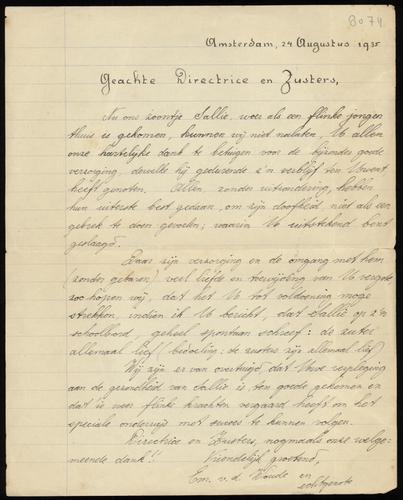 8074
Amsterdam, 24 Augustus 1935
Geachte Directrice en Zusters,
Nu ons zoontje Sallie, weer als een flinke jongen
thuis is gekomen, kunnen wij niet nalaten, U allen
onze hartelijke dank te betuigen voor de bijzonder goede
verzorging, dewelke hij gedurende z'n verblijf ten Uwent
heeft genoten. Allen, zonder uitzondering, hebben
hun uiterste best gedaan, om zijn doofheid niet als een
gebrek te doen gevoelen; waarin U uitstekend bent
geslaagd.
Daar zijn verzorging en de omgang met hem
(zonder gebaren) veel liefde en toewijding van U vergde
zoo hopen wij, dat het U tot voldoening moge
strekken, indien ik U bericht, dat Sallie op z'n
schoolbord, geheel spontaan schreef: de zuster
allemaal lief (bedoeling: de zusters zijn allemaal lief)
Wij zijn er van overtuigd, dat Uwe verpleging
aan de gezondheid van Sallie is ten goede gekomen en
dat is weer flinke krachten vergaard heeft om het
speciale onderwijs met succes te kunnen volgen.
Directrice en Zusters, nogmaals onze welge-
meende dank!! Vriendelijk groetend,
Em. v. d. Woude en
echtgenote